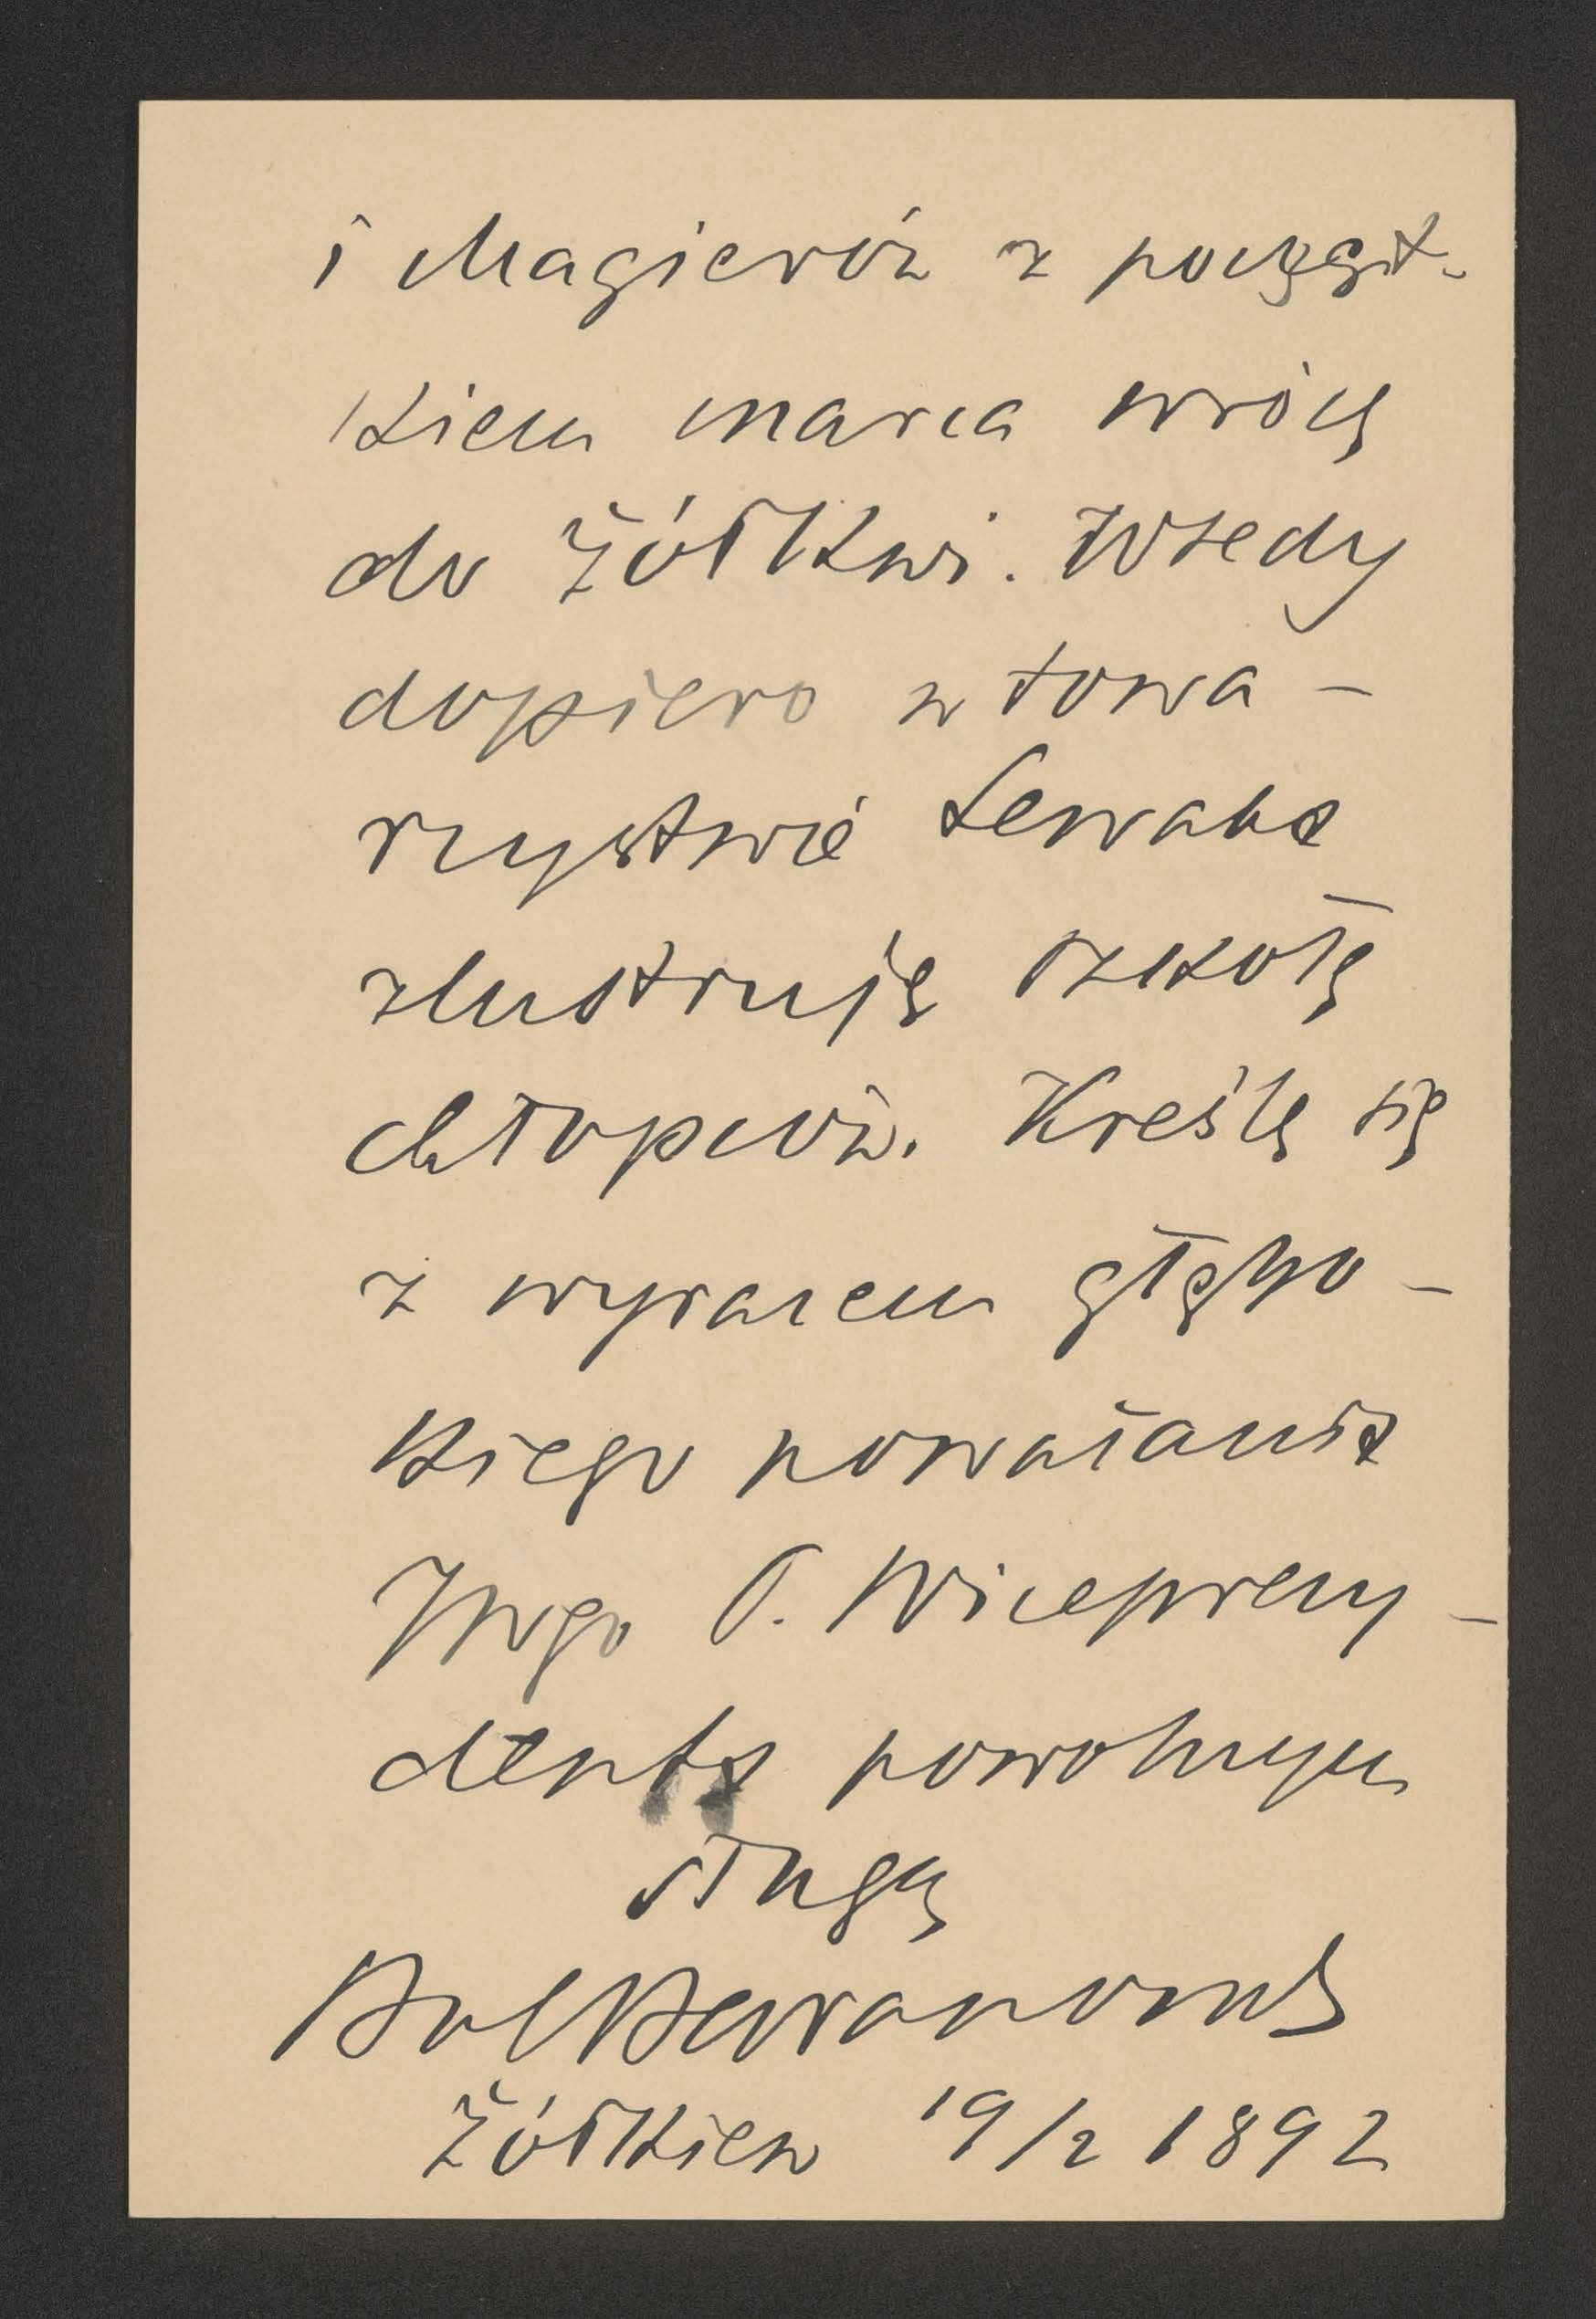 i Magierów z począt-
kiem marca wrócę
do Żółkwi. Wtedy
dopiero w towa-
rzystwie
zlustruję szkołę
chłopców. Kreślę się
z wyrazem głębo-
kiego poważania
JWgo P. Wiceprezy-
denta powolnym
sługą
Bol Baranowski
Żółkiew 19/2 1892